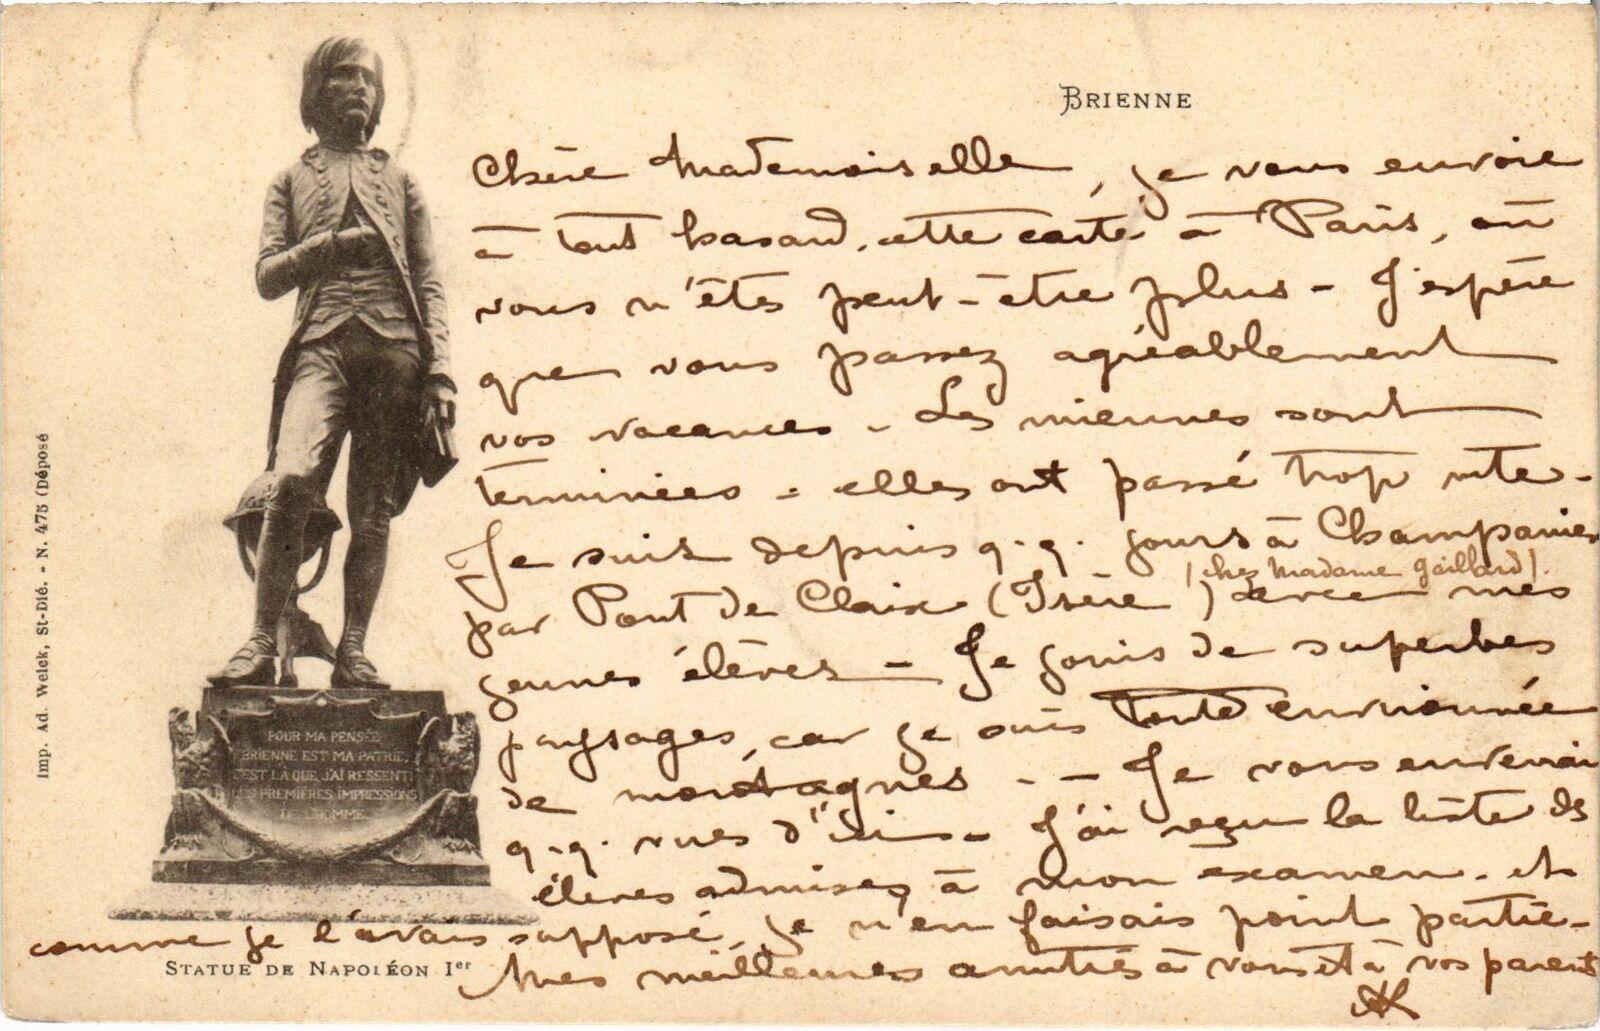 BRIENNE
Chère Mademoiselle, je vous envoie
à tout hasard, cette carte à Paris, où
vous n'êtes peut-être plus - J'espère
que vous passez agréablement
vos vacances - Les miennes sont
terminées - elles ont passé trop vite -
Je suis depuis q.q. jours à Champanier
(chez Madame Gaillard).
par Pont de Claix (Isère) avec mes
jeunes élèves - Je jouis de superbes
paysages, car je suis toute environnée
de montagnes - - Je vous enverrai
q.q. vues d'ici - J'ai reçu la liste des
élèves admises à mon examen. et
comme je l'avais supposé, je n'en faisais point partie -
Mes meilleures amitiés à vous et à vos parents
AK
POUR MA PENSÉE
BRIENNE EST MA PATRIE,
C'EST LÀ QUE J'AI RESSENTI
LES PREMIÈRES IMPRESSIONS
DE L'HOMME.
STATUE DE NAPOLÉON Ier
Imp. Ad. Weick, St-Dié. - N. 475 (Déposé